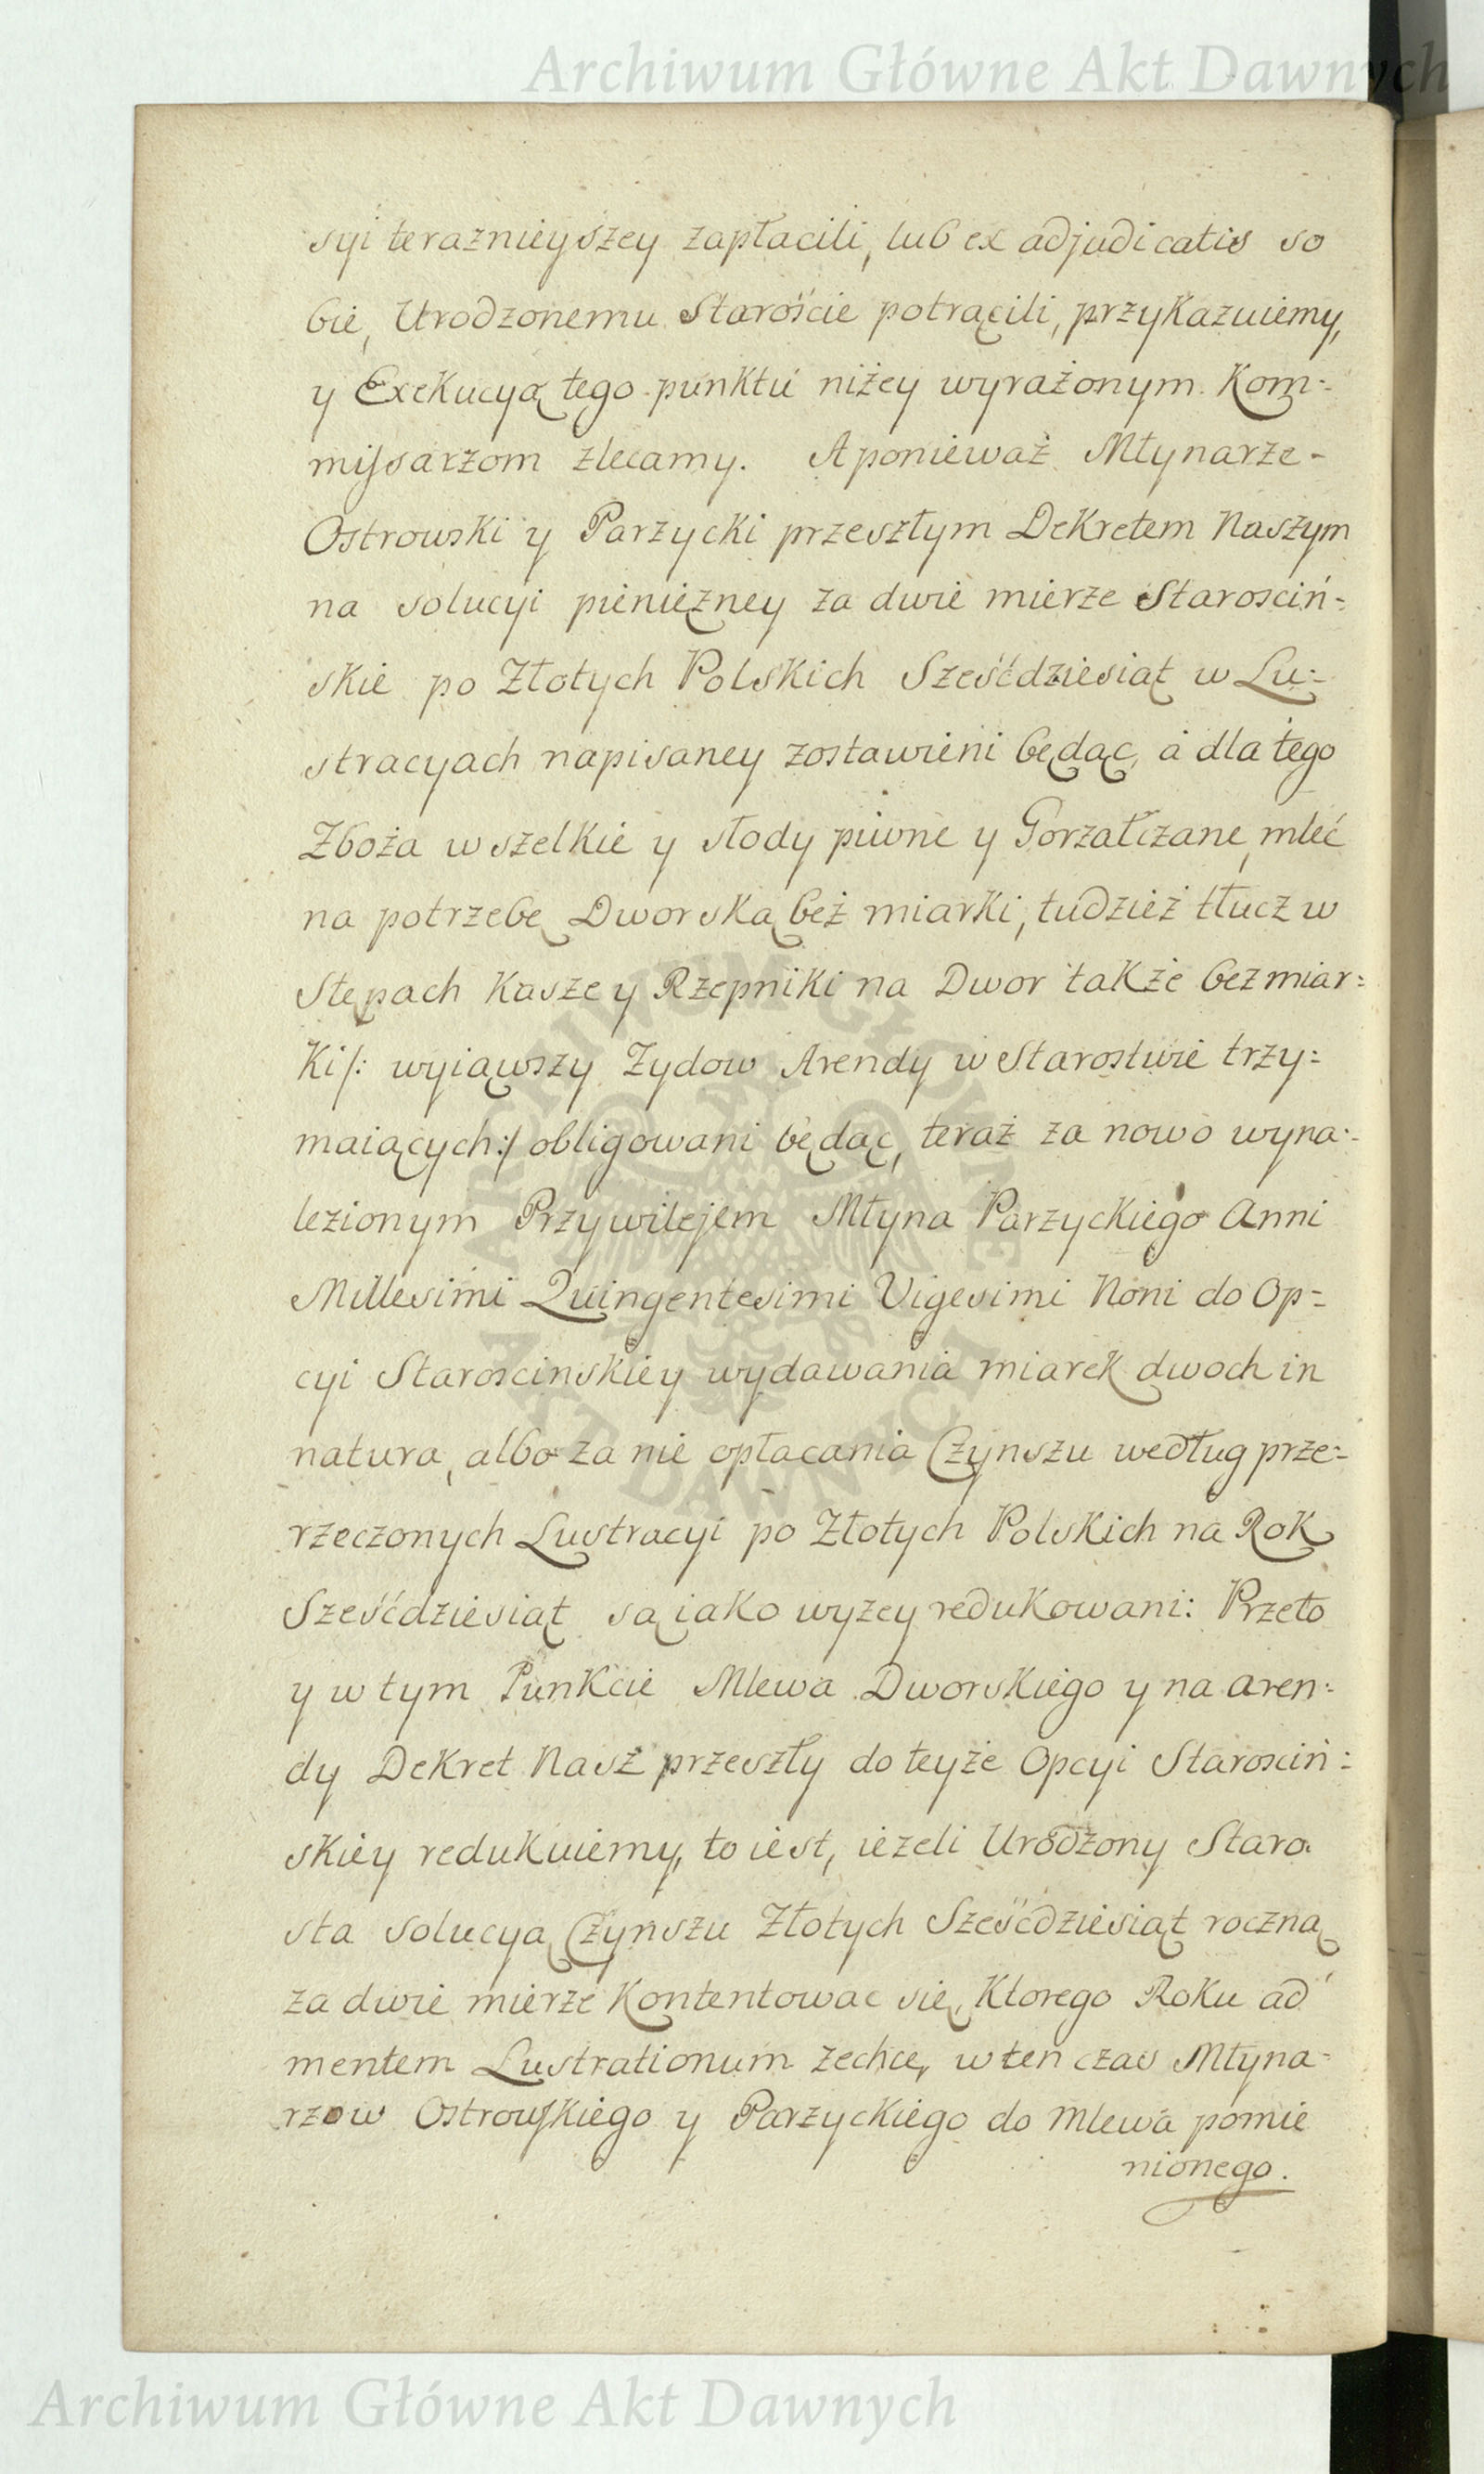 Archiwum Główne Akt Dawnych
syi teraznieyszey zapłacili, lub ex adjudicatis so
bie, Urodzonemu Starośćie potrącili, przykazuiemy,
y Exekucyą tego punktu niżey wyrażonym Kom:
missarzom zlecamy. A ponieważ Młynarze-
Ostrowski y Parzycki przeszłym Dekretem Naszym
na solucyi pienięzney za dwie mierze Starosciń:
skie po Złotych Polskich Sześćdziesiąt w Lu:
stracyach napisaney zostawieni będąc, a dla tego
Zboża wszelkie y słody piwne y Gorzałczane, mleć
na potrzebę Dworską beż miarki, tudzież tłucz w
Stępach Kasze y Rzepniki na Dwor także bez miar:
ki /: wyiąwszy Zydow Arendy w Starostwie trzy:
maiących :/ obligowani będąc, teraż za nowo wyna:
lezionym Przywilejem Młyna Parzyckiego Anni
Millesimi Quingentesimi Vigesimi Noni do Op:
cyi Staroscinskiey wydawania miarek dwoch in
natura, albo za nie opłacania Czynszu według prze:
rzeczonych Lustracyi po Złotych Polskich na Rok
Sześćdziesiąt są iako wyzey redukowani: Przeto
y w tym Punkcie Mlewa Dworskiego y na aren:
dy Dekret Nasz przeszły do teyże Opcyi Starosciń:
skiey redukuiemy, to iest, ieżeli Urodzony Staro
sta solucyą Czynszu Złotych Sześćdziesiąt roczną
za dwie mierze Kontentowac się, Ktorego Roku ad
mentem Lustrationum zechce, w ten czas Młyna-
rzow Ostrowskiego y Parzyckiego do Mlewa pomie
nionego.
Archiwum Główne Akt Dawnych